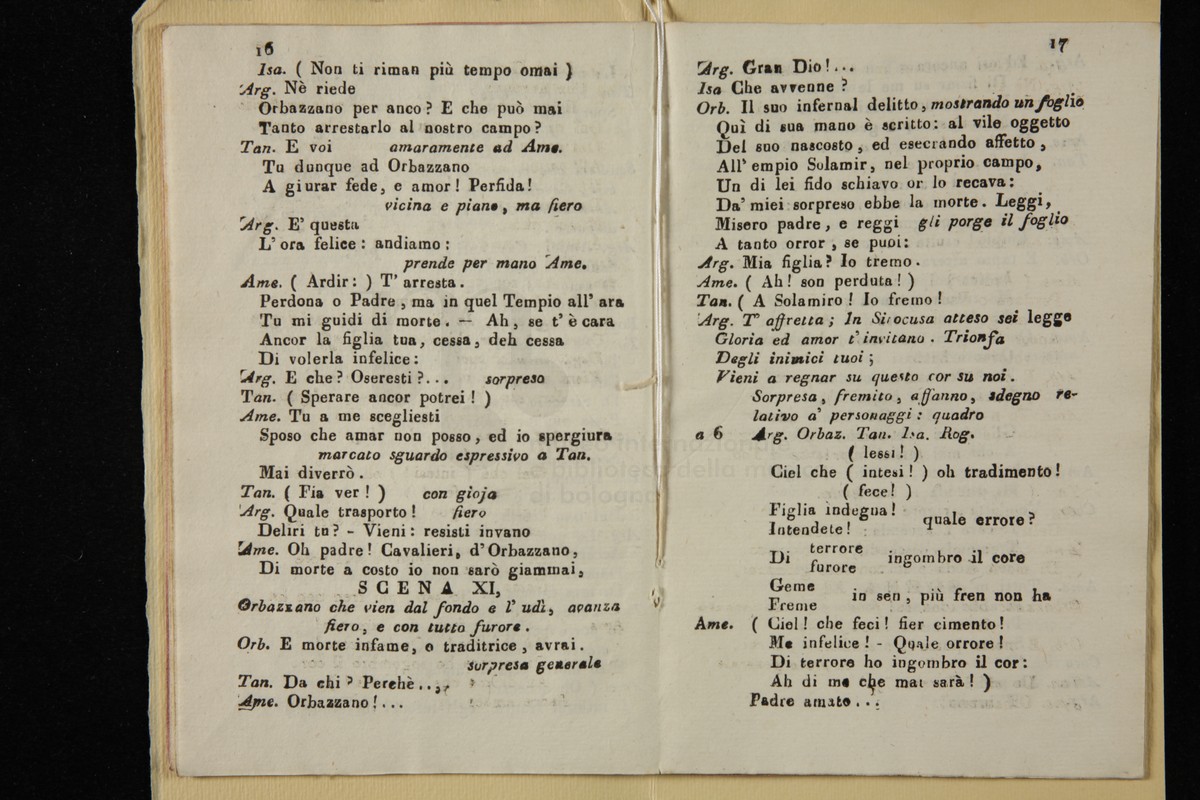 16
Isa. ( Non ti riman più tempo omai )
Arg. Nè riede
Orbazzano per anco? E che può mai
Tanto arrestarlo al nostro campo?
Tan. E voi amaramente ad Ame.
Tu dunque ad Orbazzano
A giurar fede, e amor! Perfida!
vicina e piano, ma fiero
Arg. E' questa
L' ora felice: andiamo:
prende per mano Ame.
Ame. ( Ardir: ) T' arresta.
Perdona o Padre, ma in quel Tempio all' ara
Tu mi guidi di morte. — Ah, se t' è cara
Ancor la figlia tua, cessa, deh cessa
Di volerla infelice:
Arg. E che? Oseresti?... sorpreso
Tan. ( Sperare ancor potrei! )
Ame. Tu a me scegliesti
Sposo che amar non posso, ed io spergiura
marcato sguardo espressivo a Tan.
Mai diverrò.
Tan. ( Fia ver! ) con gioja
Arg. Quale trasporto! fiero
Deliri tu? - Vieni: resisti invano
Ame. Oh padre! Cavalieri, d'Orbazzano,
Di morte a costo io non sarò giammai,
SCENA XI,
Orbazzano che vien dal fondo e l' udì, avanza
fiero, e con tutto furore.
Orb. E morte infame, o traditrice, avrai.
surpresa generale
Tan. Da chi? Perchè...
Ame. Orbazzano!...
17
Arg. Gran Dio!...
Isa Che avvenne?
Orb. Il suo infernal delitto, mostrando un foglio
Quì di sua mano è scritto: al vile oggetto
Del suo nascosto, ed esecrando affetto,
All' empio Solamir, nel proprio campo,
Un di lei fido schiavo or lo recava:
Da' miei sorpreso ebbe la morte. Leggi,
Misero padre, e reggi gli porge il foglio
A tanto orror, se puoi:
Arg. Mia figlia? Io tremo.
Ame. ( Ah! son perduta! )
Tan. ( A Solamiro! Io fremo!
Arg. T' affretta; In Siracusa atteso sei legge
Gloria ed amor t' invitano. Trionfa
Degli inimici tuoi;
Vieni a regnar su questo cor su noi.
Sorpresa, fremito, affanno, sdegno re-
lativo a' personaggi: quadro
a 6 Arg. Orbaz. Tan. Isa. Rog.
( lessi! )
Ciel che ( intesi! ) oh tradimento!
( fece! )
Figlia indegna!
quale errore?
Intendete!
terrore
Di ingombro il core
furore
Geme
in sen, più fren non ha
Freme
Ame. ( Ciel! che feci! fier cimento!
Me infelice! - Quale orrore!
Di terrore ho ingombro il cor:
Ah di me che mai sarà! )
Padre amato...